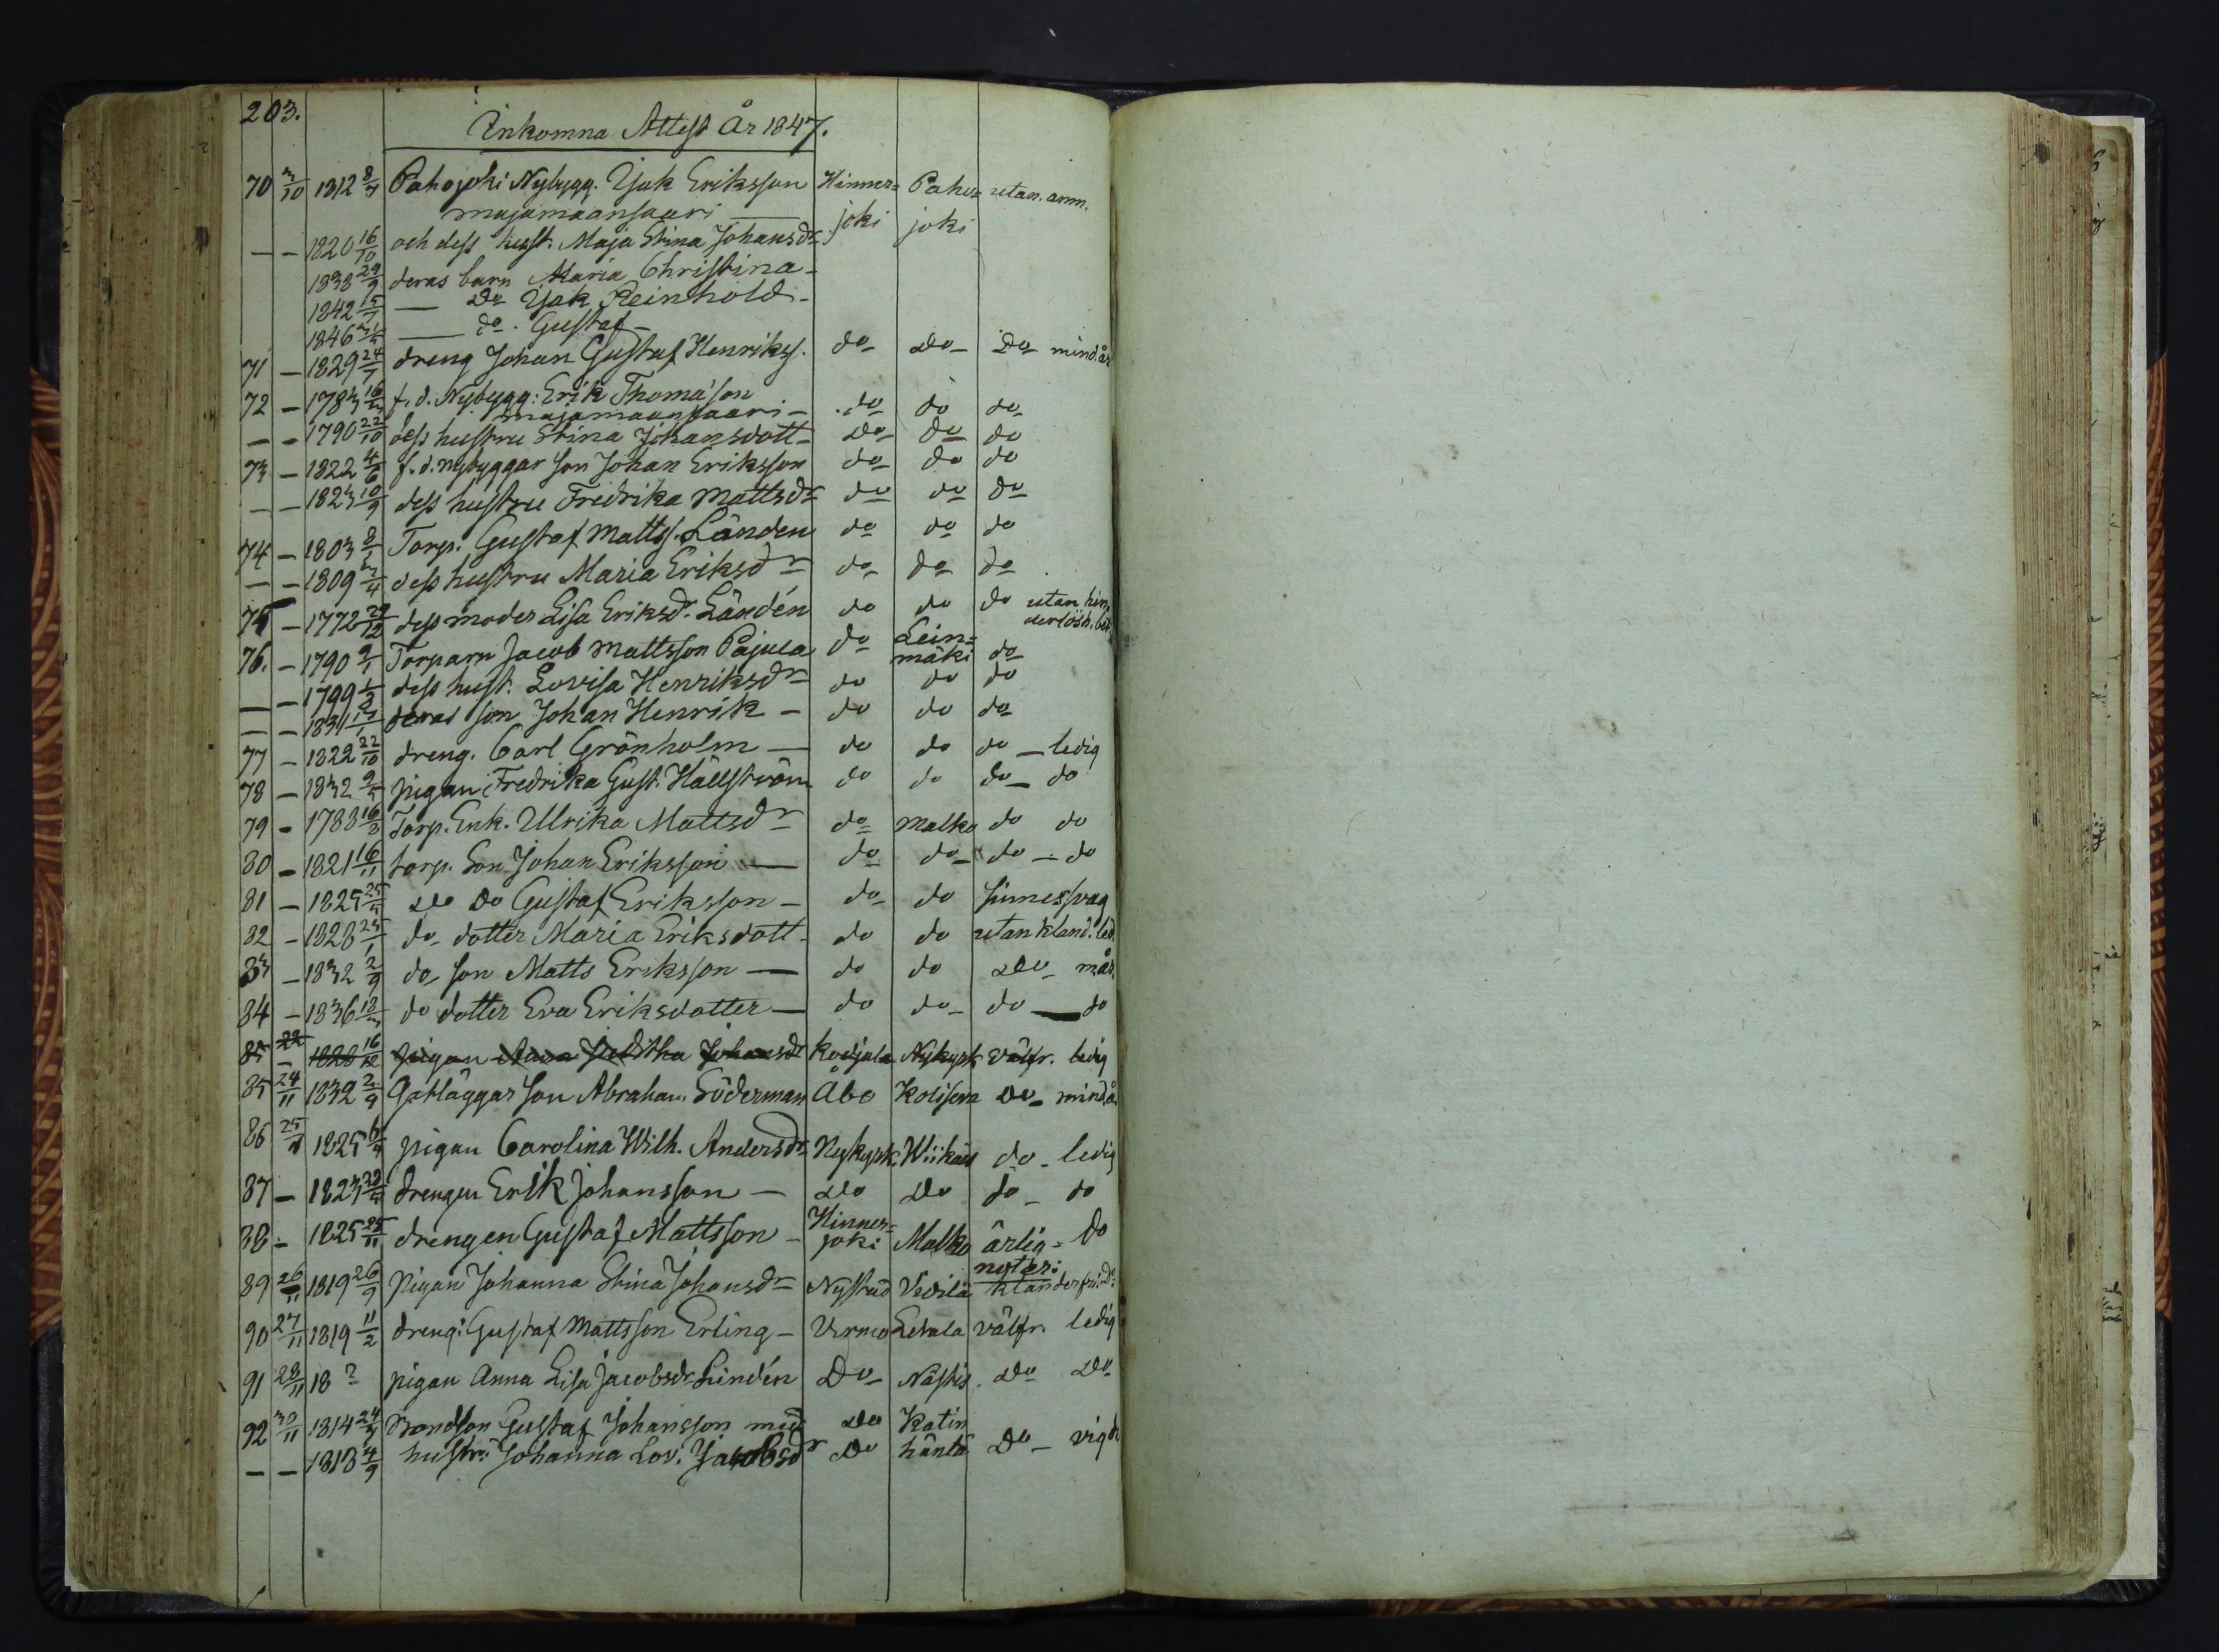 203.
Inkomna Attest År 1847.
70 3/10 1812 8/7 Pahojoki Nybygg. Isak Eriksson Hinner= Paho= utan. anm.
majamaansaari — joki joki
— — 1820 16/10 och dess hust. Maja Stina Johansdr
1838 29/9 deras barn Maria Christina -
1842 15/7 — Do Isak Reinhold -
1846 — do. Gustaf -
71 — 1829 24/7 dreng Johan Gustaf Henrikss. do Do Do mind.år
72 — 1783 16/3 f.d. Nybygg: Erik Thomasson
majamaansaari — do do do
— — 1790 22/10 dess hustru Stina Johansdott - Do do do
73 — 1822 4/6 f.d. nybyggar son Johan Eriksson do do do
— — 1823 10/9 dess hustru Fredrika Mattsdr do do do
74 — 1803 8/1 Torp. Gustaf Matts. Länden do do do
— — 1809 3/4 dess hustru Maria Eriksdr do do do
75 — 1772 29/12 dess moder Lisa Eriksdr. Ländén do do do utan hin
derlösh. bet
76. — 1790 9/1 Torparn Jacob Mattsson Pajula do Lein=
mäki do
— — 1799 1/2 dess hust. Lovisa Henriksdr do do do
— — 1831 deras son Johan Henrik — do do do
77 — 1822 22/10 dreng. Carl Grönholm — do do do — ledig
78 — 1832 pigan Fredrika Gust. Hällström do do do — do
79 — 1788 16/8 Torp. Enk. Ulrika Mattsdr do Malko do do
80 — 1821 16/11 torp. Son Johan Eriksson — do do do — do
81 — 1825 25/5 Do Do Gustaf Eriksson — do do sinnessvag
82 — 1828 25/1 do dotter Maria Eriksdott - do do utan kland. led.
83 — 1832 2/9 do son Matts Eriksson — do do Do m.år.
84 — 1836 18/3 do dotter Eva Eriksdotter — do do do — do
85 22 1828 16/12 pigan Anna Juditha Johansdr Kodjala Nykyrk välfr. ledig
85 24/11 1832 2/9 Gatläggar son Abraham Söderman Åbo Do mind.å
86 25/11 1825 6/4 pigan Carolina Wilh. Andersdr Nykyrk. Wiikais do - ledig
87 — 1823 28/4 drengen Erik Johansson — Do Do do — do
88 — 1825 25/11 drengen Gustaf Mattsson — Hinner=
joki Malko ärlig = do
nykter:
89 26/11 1819 26/9 Pigan Johanna Stina Johansdr Nystad Vedila klanderfri. Do
90 27/11 1819 11/2 dreng: Gustaf Mattsson Erling — Virmo Letala välfr. ledig
91 28/11 18 ? pigan Anna Lisa Jacobsdr Lindén Do Nästis. Do Do
92 30/11 1814 24/7 Bondson Gustaf Johansson med Do Katin
— — 1818 4/9 hustru: Johanna Lov. Jacobsdr Do häntä Do — vigd